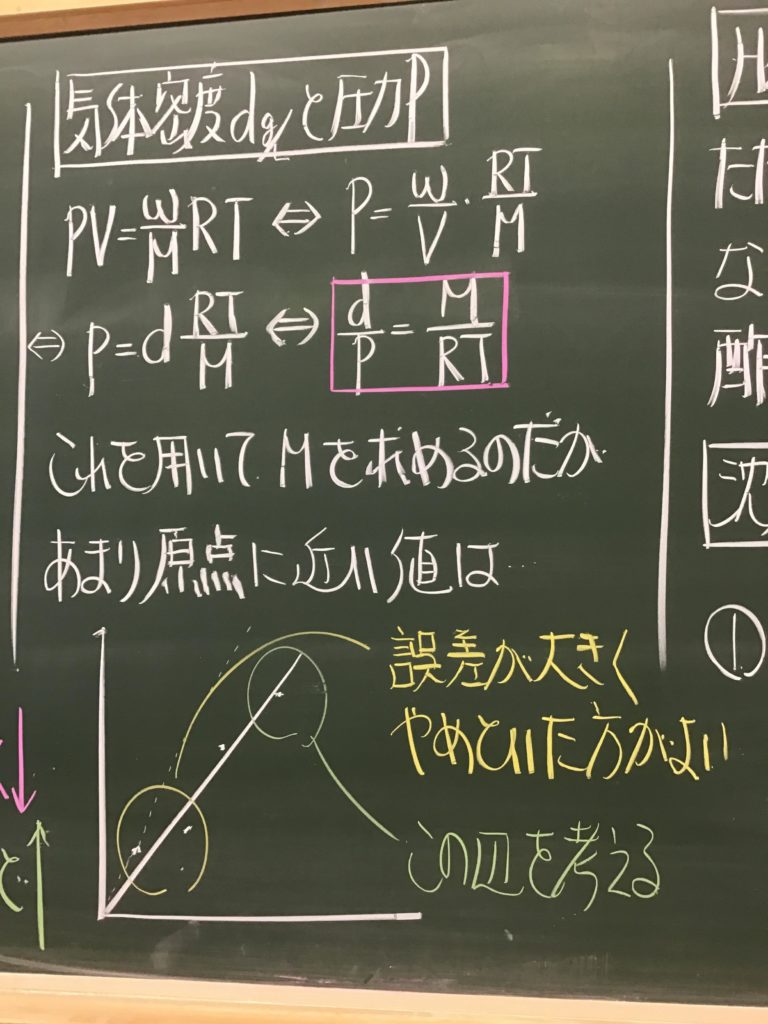 気体密度dg/Lと圧力P
PV=w/M RT ⇔ P=w/V・RT/M
⇔ P=d RT/M ⇔ d/P=M/RT
これを用いてMを求めるのだが
あまり原点に近い値は…
誤差が大きく
やめといた方がよい
この辺を考える
ど
た
な
酢
沈
①